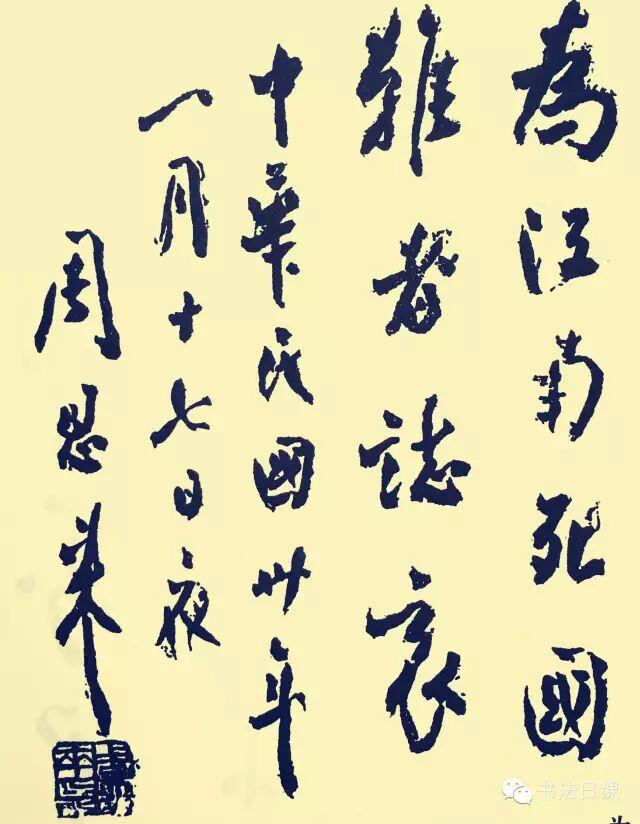 為江南死國
難者誌哀
中華民國卅年
一月十七日夜
周恩來
书法日课